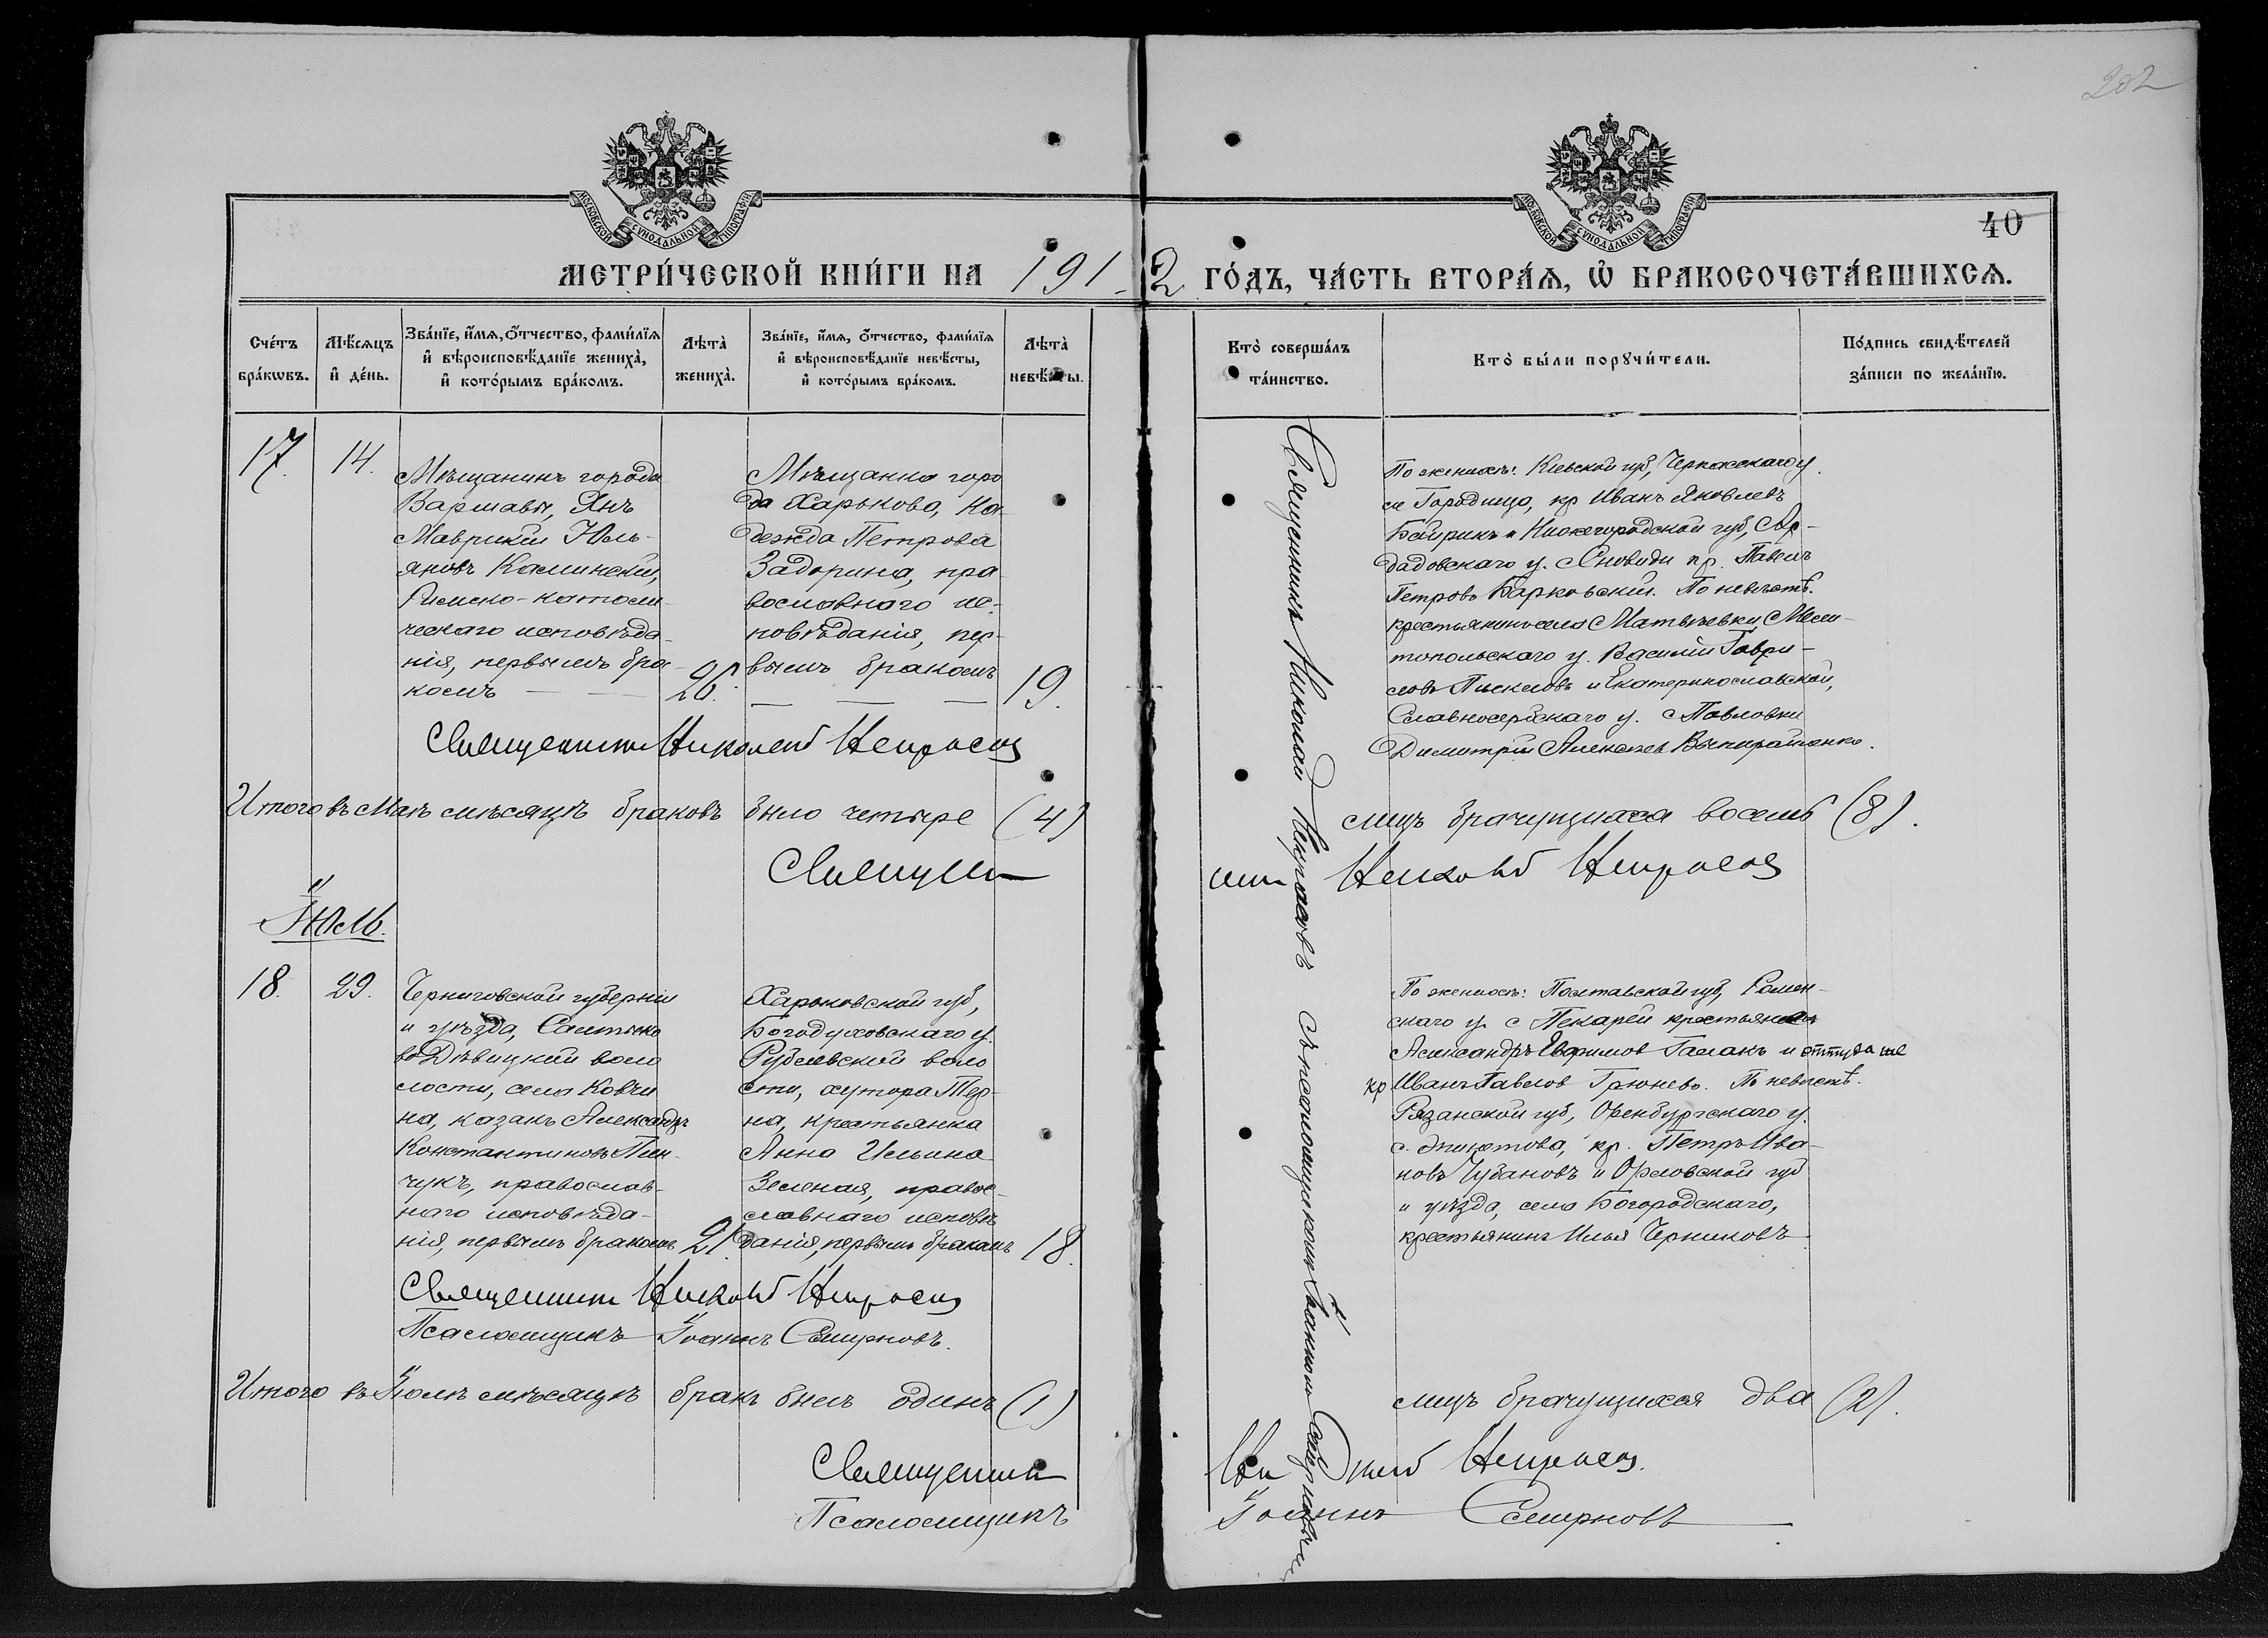 202
МОСКОВСКОЙ СѴНОДАЛЬНОЙ ТИПОГРАФІИ
МОСКОВСКОЙ СѴНОДАЛЬНОЙ ТИПОГРАФІИ
40
МЕТРИ́ЧЕСКОЙ КНИ́ГИ НА 1912 ГО́ДЪ, ЧА́СТЬ ВТОРА́Ѧ, Ѡ БРАКОСОЧЕТА́ВШИХСѦ.
Сче́тъ
бра́кѡвъ.
Мѣ́сяцъ
и҆ де́нь.
Зва́нїе, и҆́мѧ, ѻ҆́тчество, фами́лїѧ
и҆ вѣроисповѣ́данїе жениха̀,
и҆ кото́рымъ бра́комъ.
Лѣта̀
жениха̀.
Зва́нїе, и҆́мѧ, ѻ҆́тчество, фами́лїѧ
и҆ вѣроисповѣ́данїе невѣ́сты,
и҆ кото́рымъ бра́комъ.
Лѣта̀
невѣ́сты.
Кто̀ соверша́лъ
та́инство.
Кто̀ бы́ли порꙋчи́тели.
По́дпись свидѣ́телей
за́писи по жела́нїю.
17.
14.
Мѣщанинъ города
Варшавы, Янъ
Маврикій Юль-
яновъ Каминскій,
Римско-католи-
ческаго исповѣда-
нія, первымъ бра-
комъ
26.
Мѣщанка горо
да Харькова, На
дежда Петрова
Задорина, пра
вославнаго ис-
повѣданія, пер-
вымъ бракомъ
19.
Священникъ Николай Некрасовъ съ псаломщикомъ Іоанномъ Смирновымъ
По женихѣ: Кіевской губ, Черкасскаго у.
м Городища, кр Иванъ Яковлевъ
и Нижегородской губ, Ар-
датовскаго у. кр. Павелъ
Петровъ Барковскій. По невѣстѣ.
крестьянинъ села Матвѣевки Мели-
топольскаго у. Василій Гаври-
ловъ и Екатеринославской,
Славносербскаго у. с Павловки
Димитрій Алексѣев
Священникъ Николай Некрасовъ
Итого въ Маѣ мѣсяцѣ браковъ было четыре (4)
лицъ брачущихся восемь (8).
Священникъ Николай Некрасовъ
Іюль.
18.
29.
Черниговской губерніи
и уѣзда, Салтыко
во Дѣвицкой воло
лости, села Ковчи
на, казакъ Александръ
Константиновъ Пин-
чукъ, православ-
наго исповѣда-
нія, первымъ бракомъ
21.
Харьковской губ,
Богодуховскаго у.
Рублевской воло
сти, хутора Тер-
на, крестьянка
Анна Ильина
Зеленая, право-
славнаго исповѣ
данія, первымъ бракомъ
18.
По женихѣ: Полтавской губ, Ромен-
скаго у. с Пекарей крестьянинъ
Александръ Евфимов Галакъ и оттуда же
кр Иванъ Павлов Грюнево. По невѣстѣ.
Рязанской губ, Оренбургскаго у.
с. кр. Петръ Ива-
новъ Чубановъ и Орловской губ
и уѣзда, села Богородскаго,
крестьянинъ Илья Черниковъ
Священникъ Николай Некрасовъ
Псаломщикъ Іоаннъ Смирновъ.
Итого въ Іюлѣ мѣсяцѣ бракъ былъ одинъ (1)
лицъ брачущихся два (2).
Священникъ Николай Некрасовъ.
Псаломщикъ Іоаннъ Смирновъ